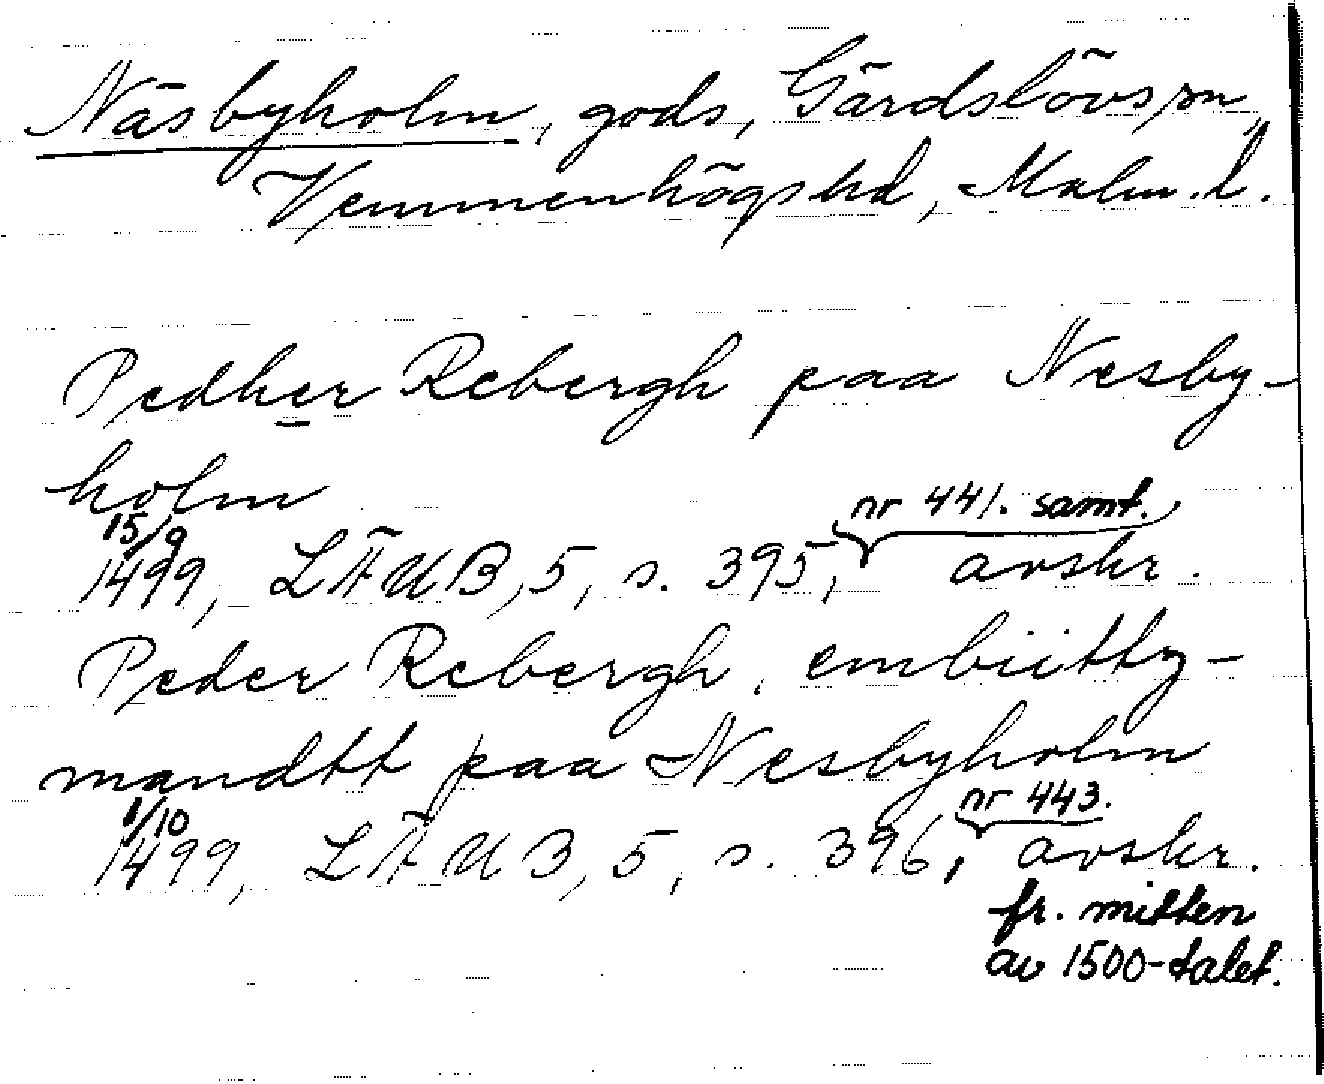 Näsbyholm, gods, Gärdslövs sn,
Vemmenhögs hd, Malm. l.
Pedher Rebergh paa Nesby-
holm
15/9 nr 441. samt.
1499, LÄUB, 5, s. 395, avskr.
Peder Rebergh, embiitty-
mandtt paa Nesbyholm
1/10 nr 443.
1499, LÄUB, 5, s. 396, avskr.
fr. mitten
av 1500-talet.